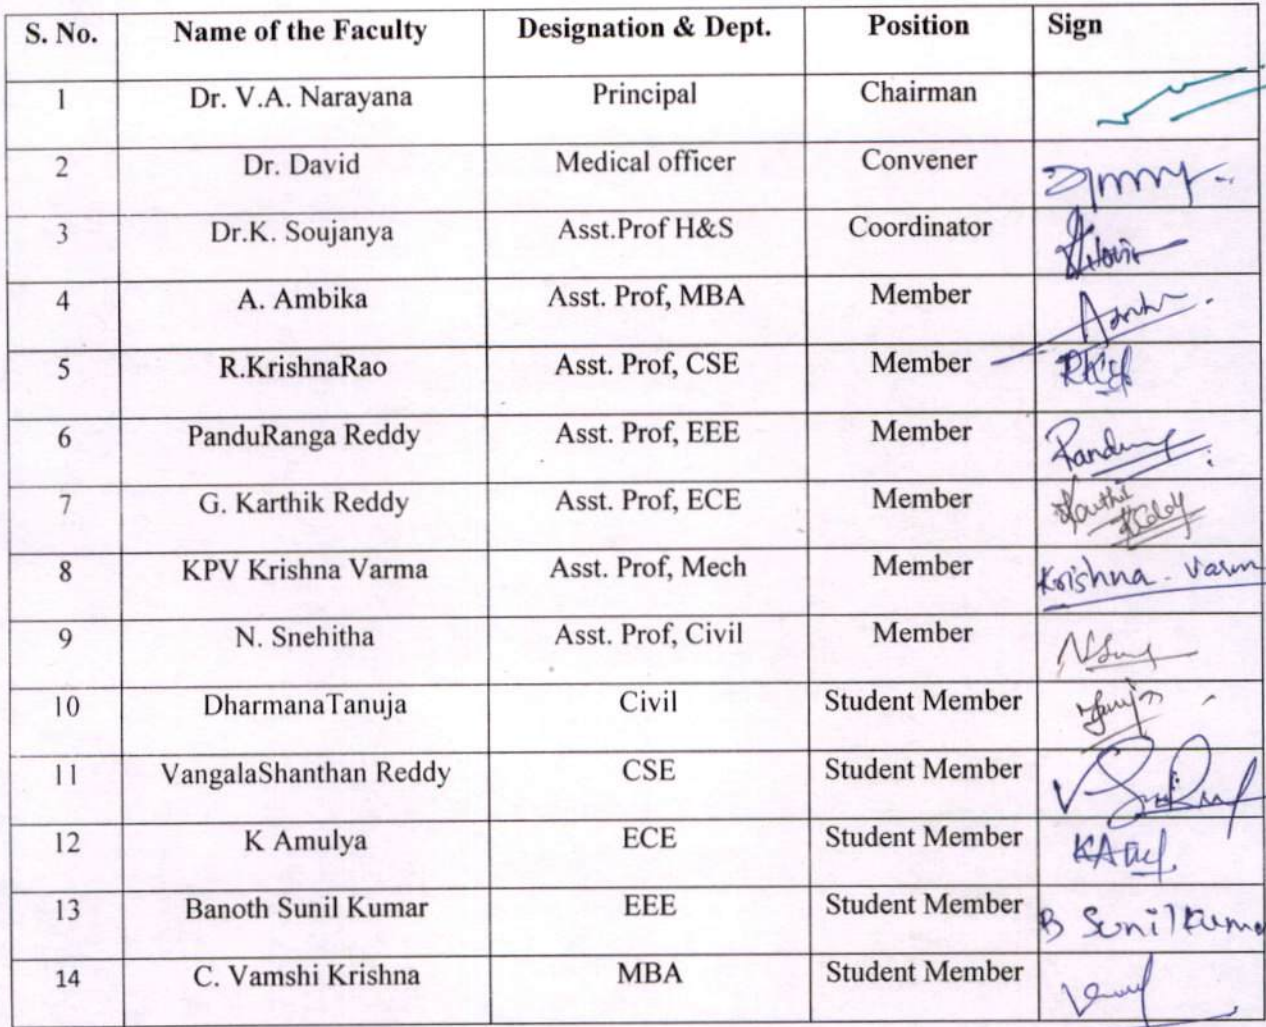 S. No. Name of the Faculty Designation & Dept. Position Sign
1 Dr. V.A. Narayana Principal Chairman
2 Dr. David Medical officer Convener
3 Dr.K. Soujanya Asst.Prof H&S Coordinator
4 A. Ambika Asst. Prof, MBA Member
5 R.KrishnaRao Asst. Prof, CSE Member
6 PanduRanga Reddy Asst. Prof, EEE Member
7 G. Karthik Reddy Asst. Prof, ECE Member Karthik
Reddy
8 KPV Krishna Varma Asst. Prof, Mech Member Krishna. Varm
9 N. Snehitha Asst. Prof, Civil Member
10 DharmanaTanuja Civil Student Member
11 VangalaShanthan Reddy CSE Student Member
12 K Amulya ECE Student Member
13 Banoth Sunil Kumar EEE Student Member B Sunil Kuma
14 C. Vamshi Krishna MBA Student Member